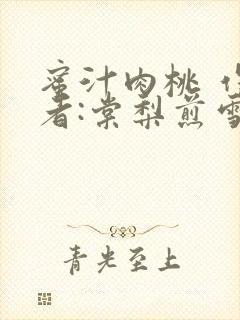 蜜汁肉桃
者:棠梨煎雪
青光至上